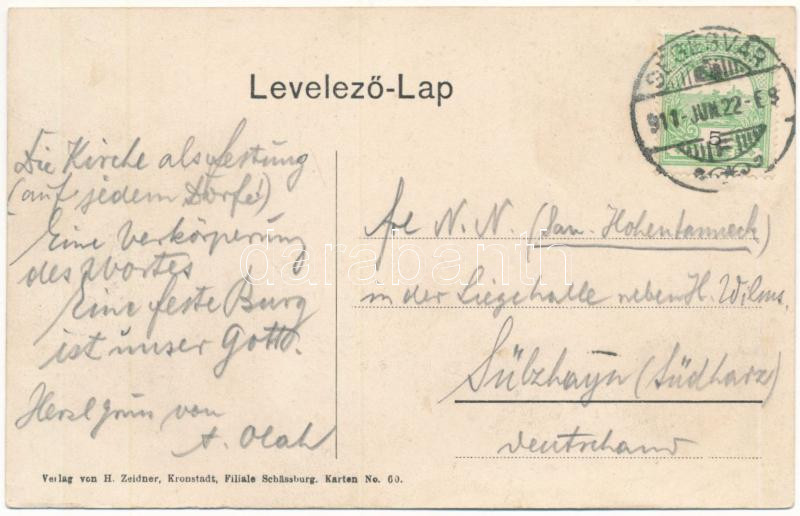 Levelező-Lap
SEGESVÁR
911-JUN.22-E8
5
Die Kirche als Festung
(auf jedem Dorfe!)
Eine Verkörperung
des Wortes
Eine feste Burg
ist unser Gott.
Herzl Gruss von
A. Olah
N. N. (San. Hohentanneck)
in der Liegehalle neben H. Wilms.
Sülzhayn (Südharz)
Deutschand
Verlag von H. Zeidner, Kronstadt, Filiale Schässburg. Karten No. 60.
darabanth